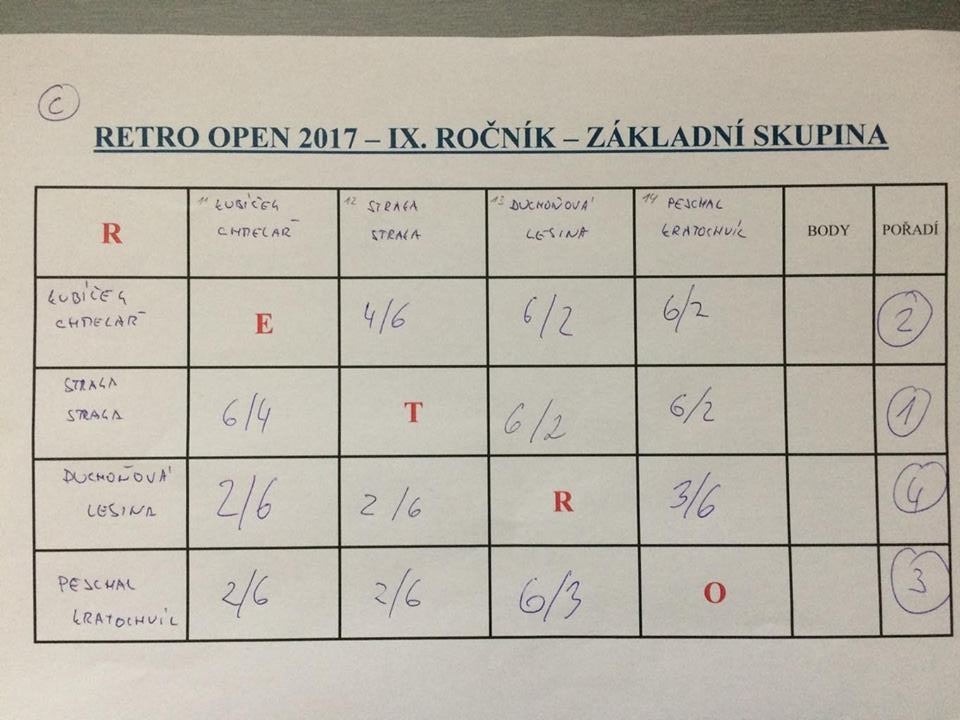 C
RETRO OPEN 2017 – IX. ROČNÍK – ZÁKLADNÍ SKUPINA
R
11 KUBÍČEK
CHMELAŘ
12 STRAKA
STRAKA
13 DUCHOŇOVÁ
LESINA
14 PESCHAL
KRATOCHVÍL
BODY
POŘADÍ
KUBÍČEK
CHMELAŘ
E
4/6
6/2
6/2
2
STRAKA
STRAKA
6/4
T
6/2
6/2
1
DUCHOŇOVÁ
LESINA
2/6
2/6
R
3/6
4
PESCHAL
KRATOCHVÍL
2/6
2/6
6/3
O
3